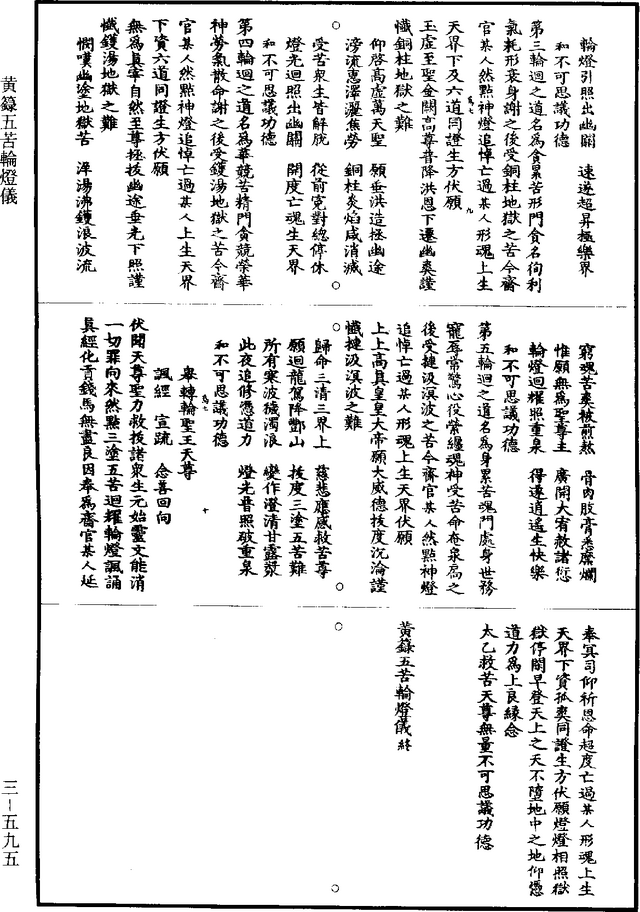 黃籙五苦輪燈儀
輪燈引照出幽關　速遂超昇極樂界
和不可思議功德
第三輪迴之道名為貪累苦形門貪名徇利
氣耗形衰身謝之後受銅柱地獄之苦今齋
官某人然點神燈追悼亡過某人形魂上生
天界下及六道同證生方伏願
玉虛至聖金闕高尊普降洪恩下遷幽爽謹
懺銅柱地獄之難
仰啓高虛萬天聖　願垂洪造拯幽途
滂流惠澤灑焦勞　銅柱炎焰咸消滅
受苦衆生皆解脫　從前寃對總停休
燈光迴照出幽關　開度亡魂生天界
和不可思議功德
第四輪迴之道名為華競苦精門貪競榮華
神勞氣散命謝之後受鑊湯地獄之苦今齋
官某人然點神燈追悼亡過某人上生天界
下資六道同證生方伏願
無為真宰自然至尊拯拔幽途垂光下照謹
懺鑊湯地獄之難
憫嘆幽塗地獄苦　渾湯沸鑊浪波流
窮魂苦爽被煎熬　骨肉肢膏悉糜爛
惟願無為聖尊主　廣開大宥赦諸愆
輪燈迴耀照重泉　得遂逍遙生快樂
和不可思議功德
第五輪迴之道名為身累苦魂門處身世務
寵辱常驚心役縈纏魂神受苦命奄泉扃之
後受揵汲溟波之苦今齋官某人然點神燈
追悼亡過某人形魂上生天界伏願
上上高真皇皇大帝願大威德拔度沉淪謹
懺揵汲溟波之難
歸命三清三界上　慈悲應感救苦尊
願迴龍駕降酆山　拔度三塗五苦難
所有寒波穢濁浪　變作澄清甘露漿
此夜追修憑道力　燈光普照破重泉
和不可思議功德
舉轉輪聖王天尊
諷經　宣疏　念善回向
伏聞天尊聖力救拔諸衆生元始靈文能消
一切罪向來然點三塗五苦迴耀輪燈諷誦
真經化貢錢馬無盡良因奉為齋官某人延
奉冥司仰祈恩命超度亡過某人形魂上生
天界下資孤爽同證生方伏願燈燈相照獄
獄停閉早登天上之天不墮地中之地仰憑
道力為上良緣念
太乙救苦天尊無量不可思議功德
黃籙五苦輪燈儀終
三－五九五